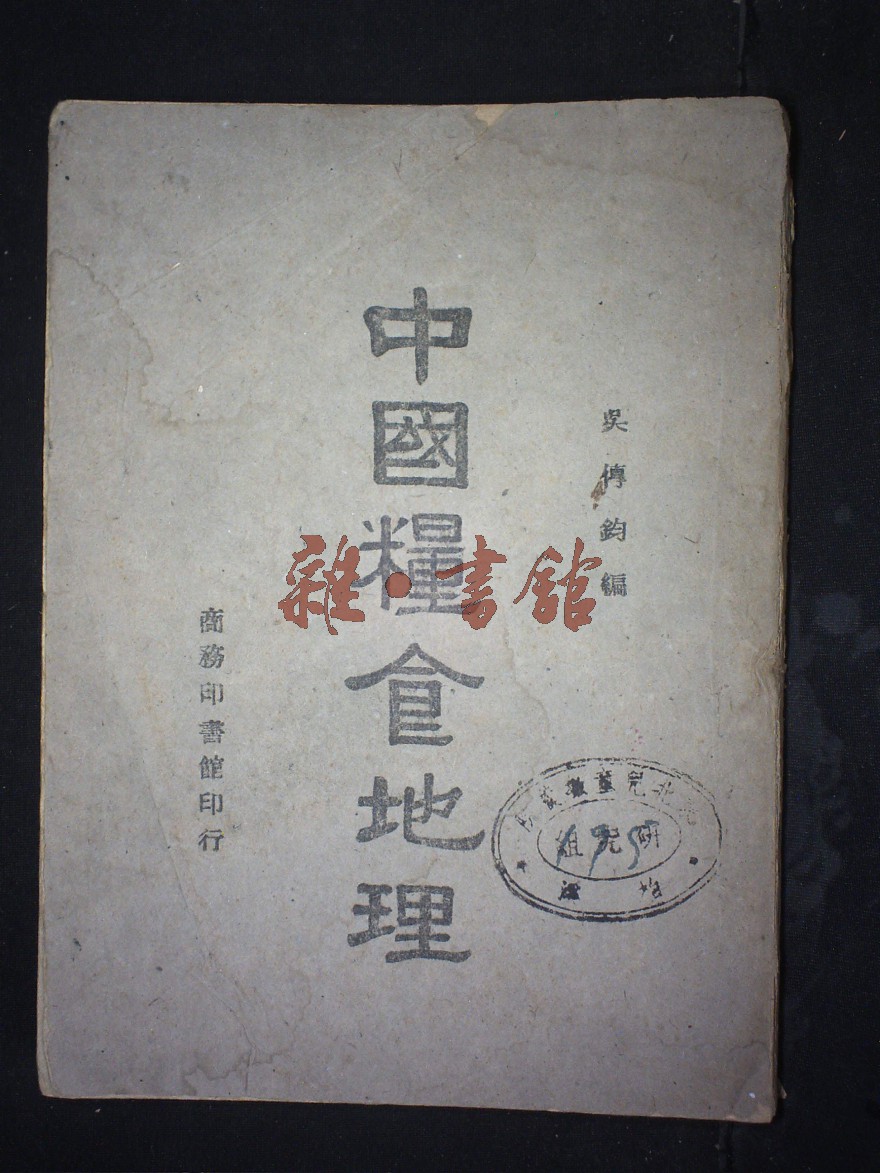 吳傳鈞編
中國糧食地理
商務印書館印行
雜·書館
研究組